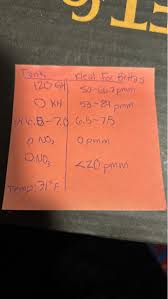 Tank Ideal For Bettas
120 GH 50-66.7 pmm
0 KH 53-84 pmm
6.8-7.0 6.5-7.5
0 NO2 0 pmm
0 NO3 <20 pmm
Temp: 71°F